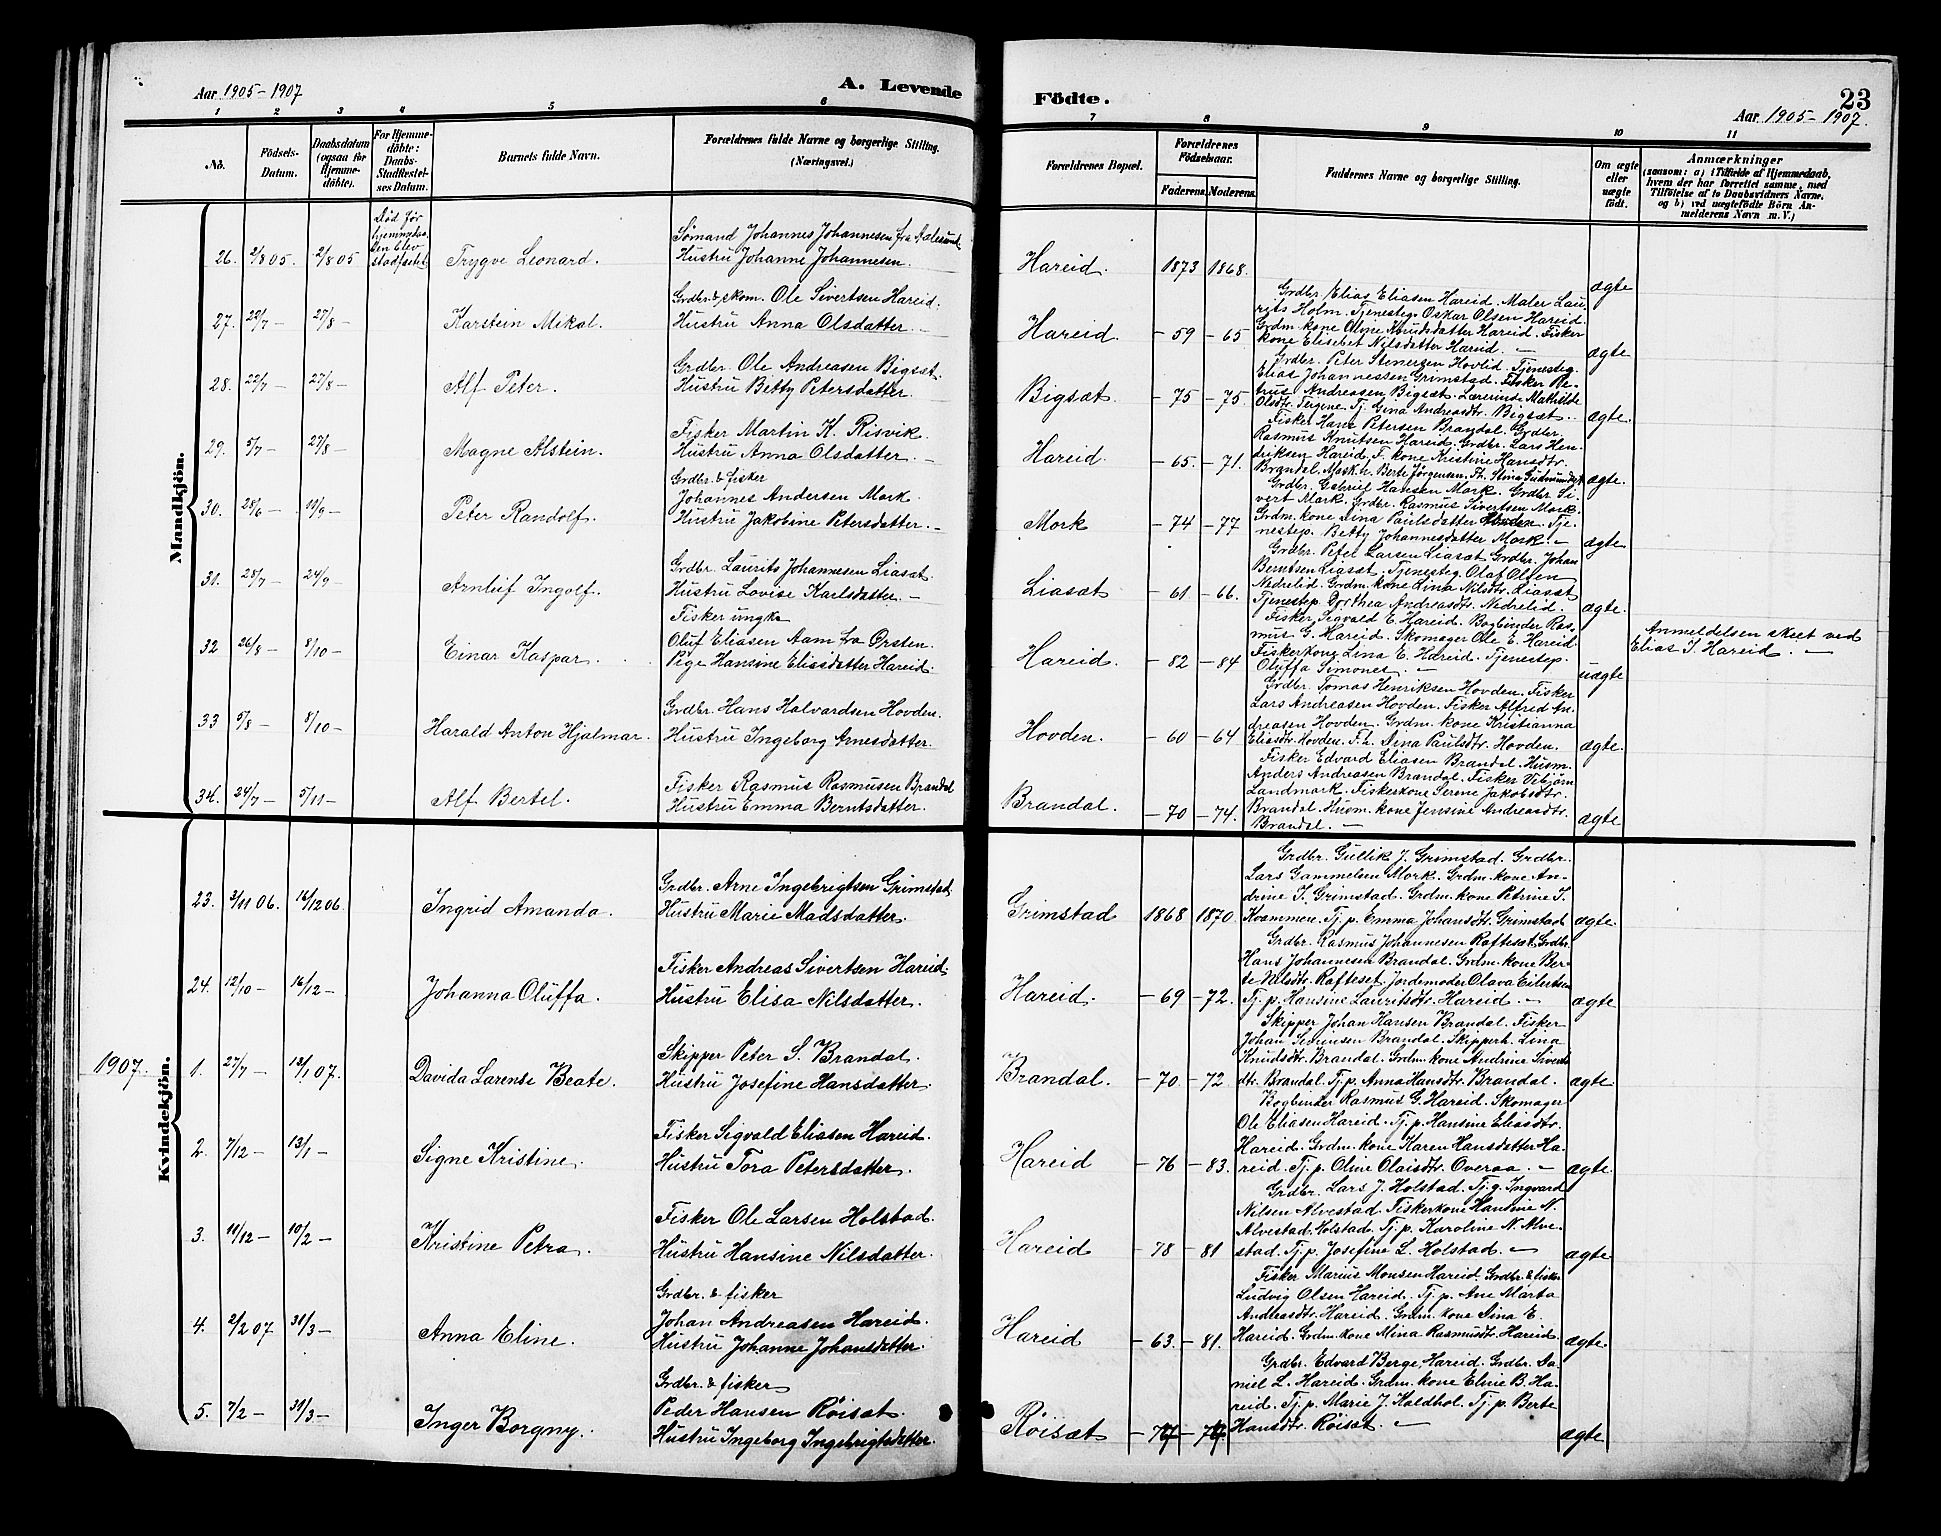 Aar 1905-1907
A. Levende
Födte.
23
Aar 1905-1907.
1 2 3 4 5 6
7 8 9 10 11
No.
Födsels-
Datum.
Daabsdatum
(ogsaa for
Hjemme-
döbte).
For Hjemme-
döbte:
Daabs-
Stadfæstel-
ses Datum.
Barnets fulde Navn.
Forældrenes fulde Navne og borgerlige Stilling.
(Næringsvei.)
Forældrenes Bopæl.
Forældrenes
Födselsaar.
Faderens.
Moderens.
Faddernes Navne og borgerlige Stilling.
Om ægte
eller
uægte
födt.
Anmærkninger
(saasom: a) i Tilfælde af Hjemmedaab,
hvem der har forrettet samme, med
Tilföielse af to Daabsvidners Navne.
og b) ved uegtefödte Börn An-
melderens Navn m. V.)
Mandkjön.
Död før
hjemmedaa-
ben blev
stadfæstet
26. 2/8 05. 2/8 05 Trygve Leonard.
Sømand Johannes Johannesen fra Aalesund
Hustru Johanne Johannesen.
Hareid. 1873 1868. ægte
27. 22/7 — 27/8 — Karstein Mikal.
Grdbr. & skom. Ole Sivertsen Hareid.
Hustru Anna Olsdatter. —
Hareid — 59 — 65
Grdbr. Elias Eliasen Hareid. Maler Lau-
rits Holm. Tjenesteg. Oskar Olsen Hareid.
Grdm. kone Oline Knudsdatter Hareid. Fisker
kone Elisebet Nilsdatter Hareid. —
ægte
28. 22/7 — 27/8 — Alf Peter.
Grdbr. Ole Andreasen Bigsæt.
Hustru Betty Petersdatter.
Bigsæt — 75 — 75.
Grdbr. Peter Stenersen Hovlid. Tjenesteg.
Elias Johannessen Grimstad. Fisker Pe-
trus Andreasen Bigsæt. Lærerinde Mathilde
Olsdtr. Tergene. Tj. Gina Andreasdtr. Bigsæt.
ægte
29. 5/7 — 27/8 — Magne Alstein.
Fisker Martin K. Risvik.
Hustru Anna Olsdatter. —
Hareid. — 65. — 71.
Fisker Hans Petersen Brandal. Grdbr.
Rasmus Knutsen Hareid. Grdbr. Lars Hen-
driksen Hareid. F. kone Kristine Hansdtr.
Brandal. Mask.h. Berte Jörgensen. Fh. Stina Gudmundsdtr
ægte.
30. 28/6 — 10/9 — Peter Randolf.
Grdbr. & fisker
Johannes Andersen Mork.
Hustru Jakobine Petersdatter. —
Mork — 74 — 77
Grdbr. Gabriel Hansen Mork. Grdbr. Si-
vert Mork. Grdbr. Rasmus Sivertsen Mork.
Grdm. kone Dina Paulsdatter Hovden. Tje-
nestep. Betty Johannesdatter Mork. —
ægte
31. 28/7 — 24/9 — Arnluf Ingolf.
Grdbr. Laurits Johannesen Liasæt.
Hustru Lovise Karlsdatter. —
Liasæt — 61 — 66.
Grdbr. Petel Larsen Liasæt. Grdbr. Johan
Berntsen Liasæt. Tjenesteg. Olaf Olsen
Nedrelid. Grdm. kone Lina Nilsdtr. Liasæt
Tjenestep. Dorthea Andreasdtr. Nedrelid.
ægte.
32 26/8 — 8/10 — Einar Kaspar.
Fisker ungka
Oluf Eliasen Aam fra Ørsten.
Pige Hansine Eliasdatter Hareid.
Hareid. — 82 — 84
Fisker Sigvald E. Hareid. Bogbinder Ras-
mus G. Hareid. Skomager Ole E. Hareid.
Fiskerkone Lina E. Hareid. Tjenestep.
Oluffa Simones —
uægte
Anmeldelsen skeet ved
Elias I. Hareid. —
33 5/8 — 8/10 — Harald Anton Hjalmar.
Grdbr. Hans Halvardsen Hovden.
Hustru Ingeborg Arnesdatter.
Hovden. — 60 — 64
Grdbr. Tomas Henriksen Hovden. Fisker
Lars Andreasen Hovden. Fisker Alfred An-
dreasen Hovden. Grdm. kone Kristianna
Eliasdtr. Hovden. F.h. Dina Paulsdtr. Hovden.
ægte.
34. 24/7 — 5/11 — Alf Bertel.
Fisker Rasmus Rasmusen Brandal
Hustru Emma Berntsdatter.
Brandal. — 70 — 74.
Fisker Edvard Eliasen Brandal. Husm.
Anders Andreasen Brandal. Fisker Vebjørn
Landmark. Fiskerskone Serene Jakobsdtr.
Brandal. Husm. kone Jensine Andreasdtr.
Brandal. —
ægte
Kvindekjön.
23. 3/11 06. 16/12 06. Ingrid Amanda.
Grdbr. Arne Ingebrigtsen Grimstad.
Hustru Marie Madsdatter.
Grimstad 1868 1870.
Grdbr. Gullik J. Grimstad. Grdbr.
Lars Gammelsen Mork. Grdm. kone An-
drine I. Grimstad. Grdm. kone Petrine I.
Kvammen. Tj. p. Emma Johansdtr. Grimstad
ægte.
24. 12/10 — 16/12 — Johanna Oluffa.
Fisker Andreas Sivertsen Hareid.
Hustru Elisa Nilsdatter.
Hareid. — 69 — 72.
Grdbr. Rasmus Johannesen Raftesæt. Grdbr.
Hans Johannesen Brandal. Grdm. kone Ber-
te Nilsdtr. Rafteset. Jordemoder Olava Eilertsen
Tj. p. Hansine Lauritsdtr. Hareid. —
ægte
1907. 1. 27/7 — 13/1 07. Davida Larense Beate.
Skipper Peter S. Brandal.
Hustru Josefine Hansdatter.
Brandal. — 70. — 72
Skipper Johan Hansen Brandal. Fisker
Johan Severinsen Brandal. Skipperh. Lina
Knudsdtr. Brandal. Grdm. kone Andrine Siverts
dtr. Brandal. Tj. p. Anna Hansdtr. Brandal.
ægte
2. 7/12 — 13/1 — Signe Kristine.
Fisker Sigvald Eliasen Hareid.
Hustru Tora Petersdatter.
Hareid — 76 — 83.
Bogbinder Rasmus G. Hareid. Skomager
Ole Eliasen Hareid. Tj. p. Hansine Eliasdtr.
Hareid. Grdm. kone Karen Hansdatter Ha-
reid. Tj. p. Oline Olaisdtr. Overaa. —
ægte.
3. 11/12 — 10/2 — Kristine Petra.
Fisker Ole Larsen Holstad.
Hustru Hansine Nilsdatter.
Hareid — 78 — 81
Grdbr. Lars J. Holstad. Tj. g. Ingvard
Nilsen Alvestad. Fiskerkone Hansine N.
Alvestad. Holstad. Tj. p. Karoline N. Alve-
stad. Tj. p. Josefine L. Holstad. —
ægte
4. 2/2 07 31/3 — Anna Eline.
Grdbr. & fisker
Johan Andreasen Hareid.
Hustru Johanne Johansdatter.
Hareid — 63. — 81.
Fisker Marius Monsen Hareid. Grdbr. & fisker
Ludvig Olsen Hareid. Tj. p. Ane Marta
Andreasdtr. Hareid. Grdm. kone Dina E.
Hareid. Grdm. kone Mina Rasmusdtr. Hareid.
ægte.
5. 7/2 — 31/3 — Inger Borgny.
Grdbr. & fisker
Peder Hansen Røisæt.
Hustru Ingeborg Ingebrigtsdatter.
Røisæt
Grdbr. Edvard Berge, Hareid. Grdbr. Da-
niel L. Hareid. Grdm. kone Eline B. Ha-
reid. Tj. p. Marie J. Haldhol. Tj. p. Berte
Hansdtr. Røisæt. —
ægte